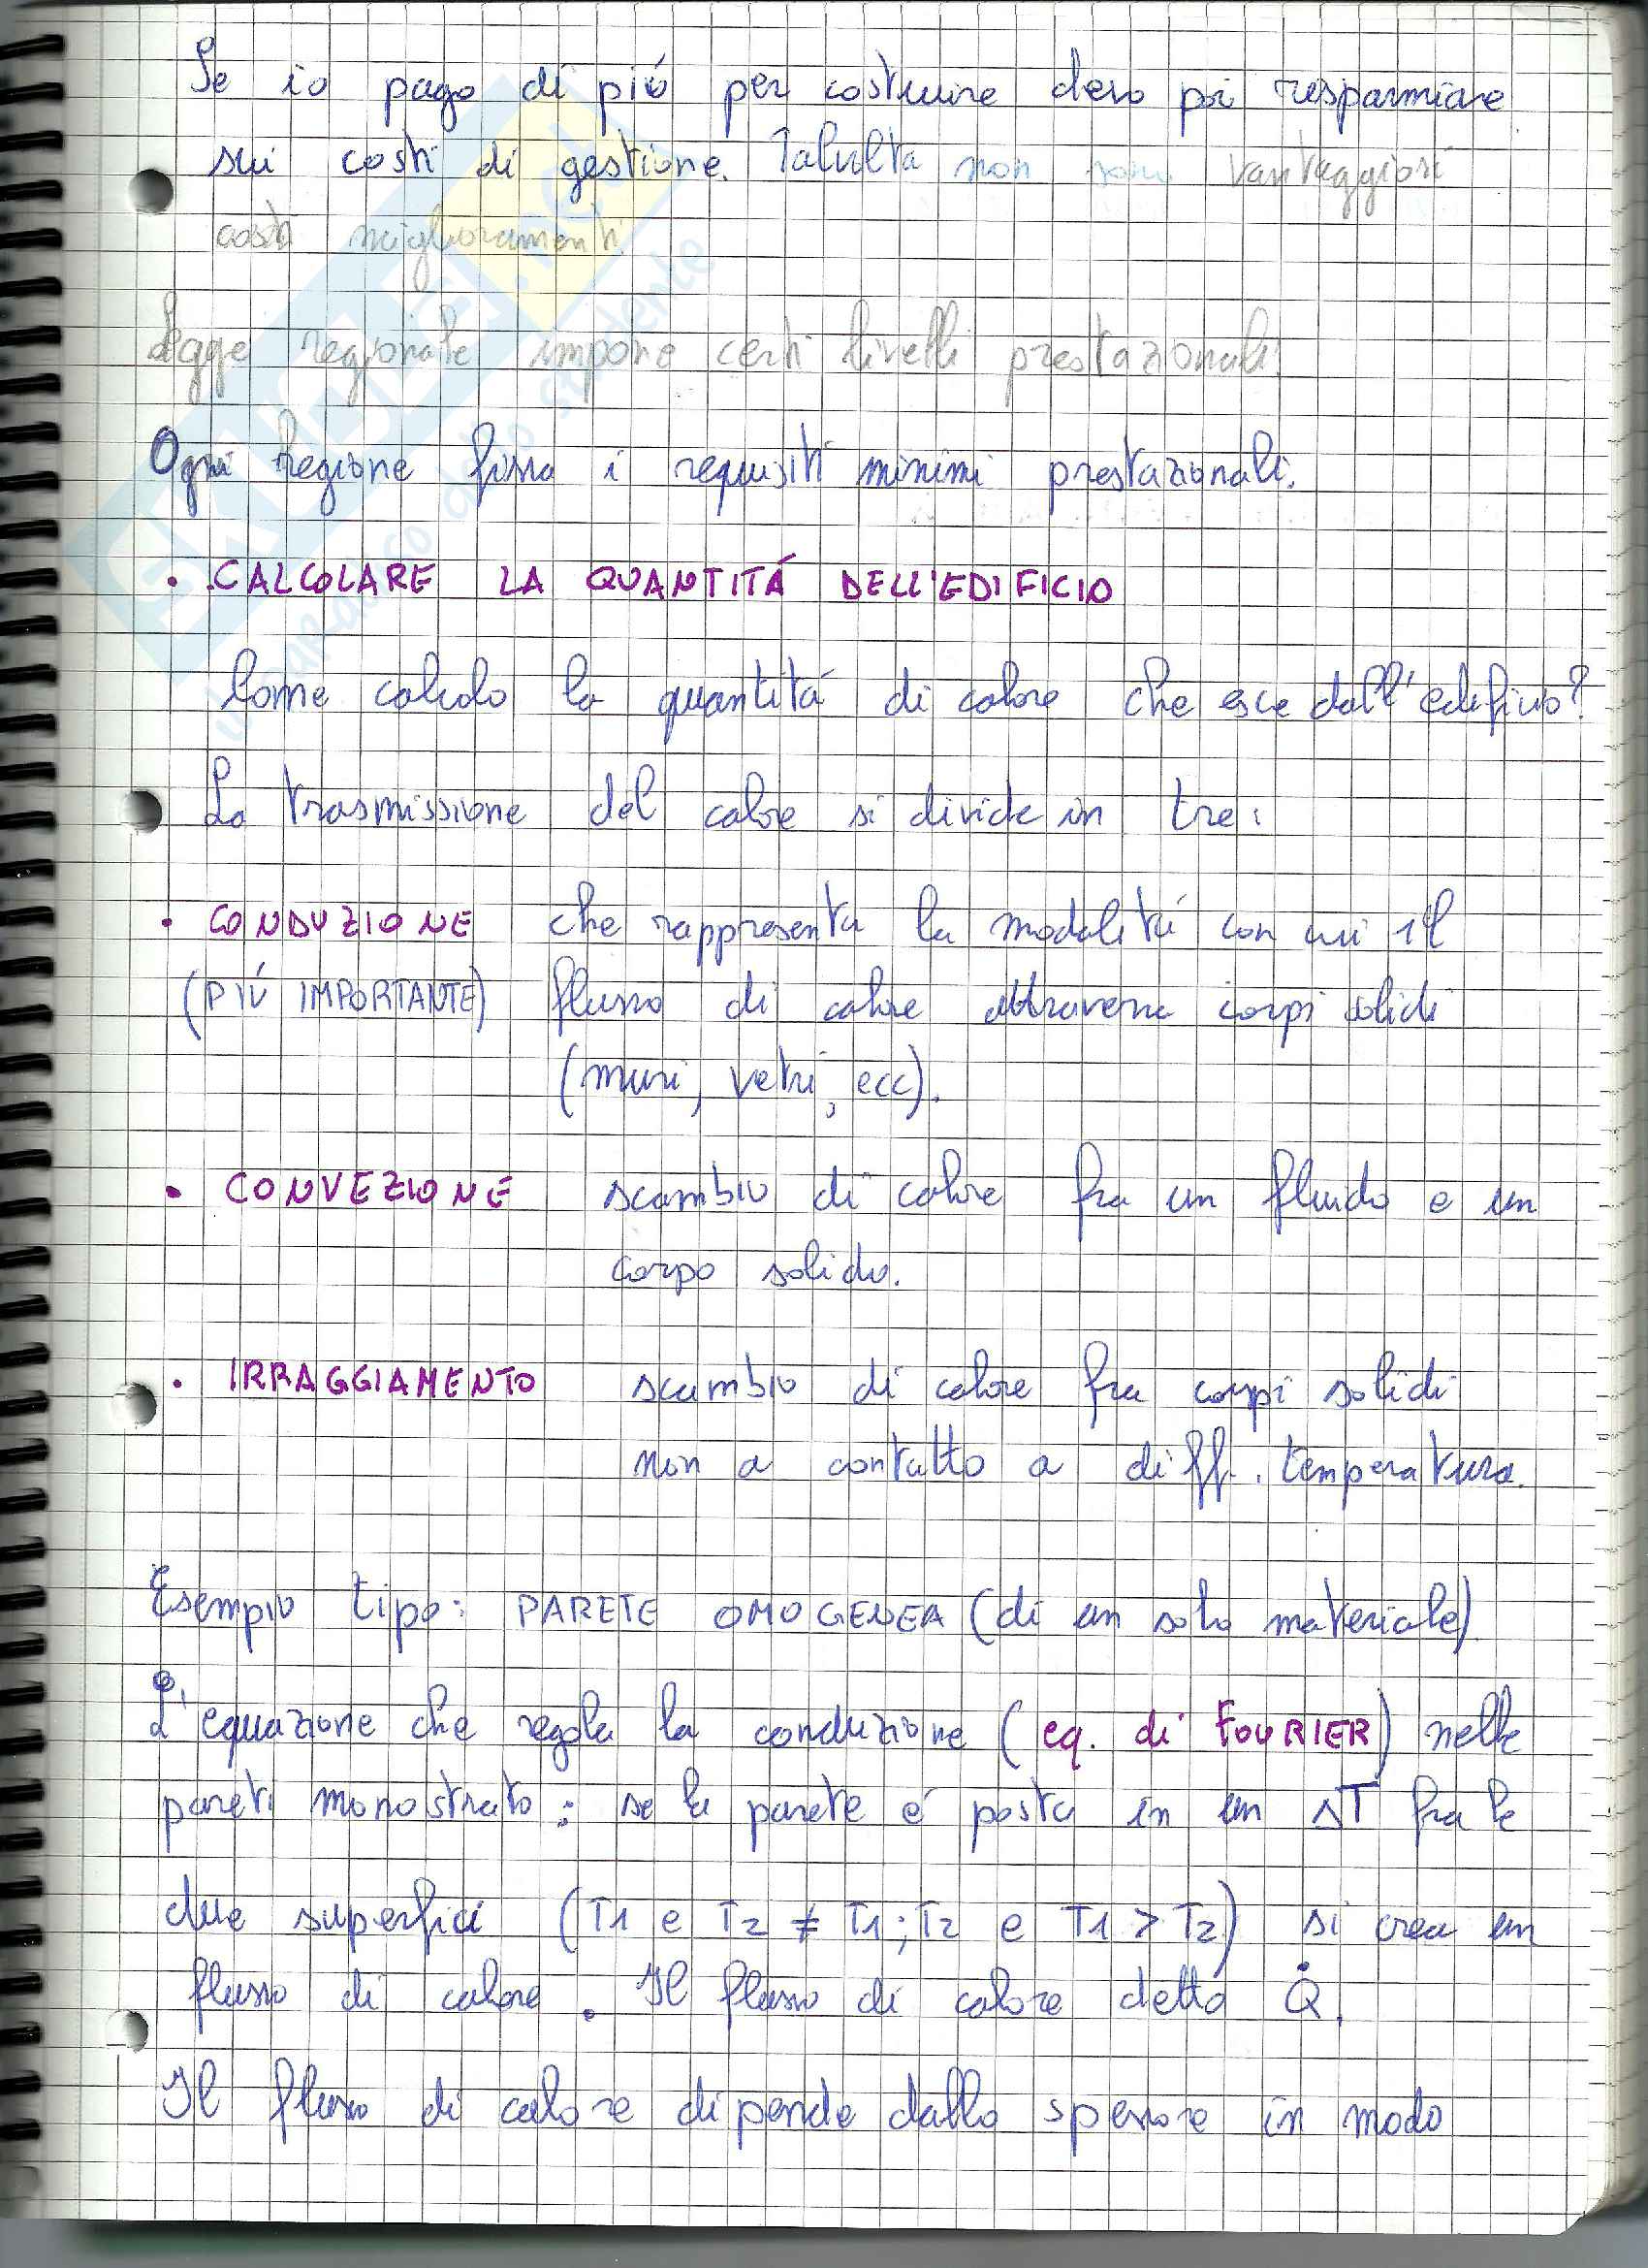 Se io pago di più per costruire devo poi risparmiare
sui costi di gestione. Talvolta non sono vantaggiosi
costi miglioramenti.
Legge regionale impone certi livelli prestazionali.
Ogni regione fissa i requisiti minimi prestazionali.
• CALCOLARE LA QUANTITÁ DELL'EDIFICIO
Come calcolo la quantitá di calore che esce dall'edificio?
La trasmissione del calore si divide in tre:
• CONDUZIONE che rappresenta la modalitá con cui il
(PIÚ IMPORTANTE) flusso di calore attraversa corpi solidi
(muri, vetri, ecc).
• CONVEZIONE scambio di calore fra un fluido e un
corpo solido.
• IRRAGGIAMENTO scambio di calore fra corpi solidi
non a contatto a diff. temperatura.
Esempio tipo: PARETE OMOGENEA (di un solo materiale)
L'equazione che regola la conduzione (eq. di FOURIER) nelle
pareti monostrato: se la parete é posta in un ΔT fra le
due superfici (T1 e T2 ≠ T1; T2 e T1 > T2) si crea un
flusso di calore. Il flusso di calore detto Q̇.
Il flusso di calore dipende dallo spessore in modo
SKUOLA.net